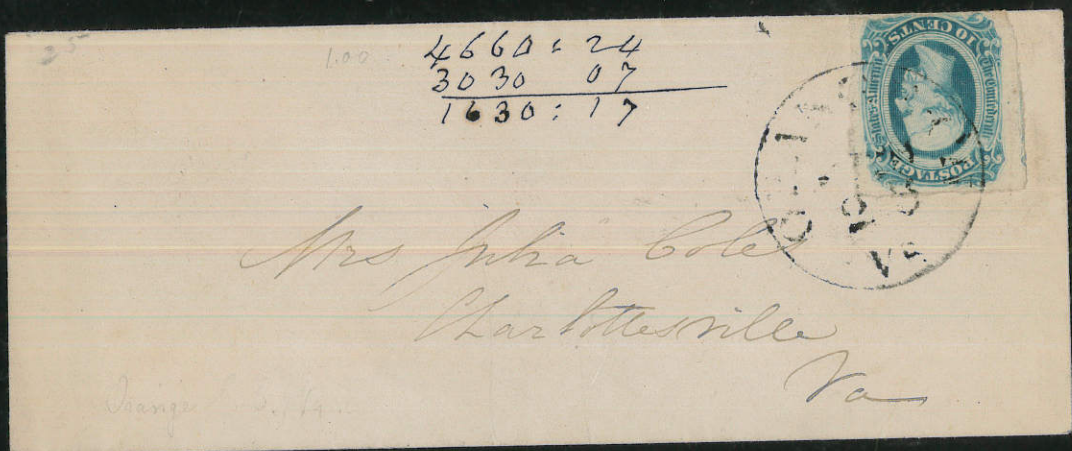 25
1.00
4660 : 24
3030 07
1630 : 17
10 CENTS
The Confederate States of America
POSTAGE
VA
Mrs Julia Coles
Charlottesville
Va
Orange